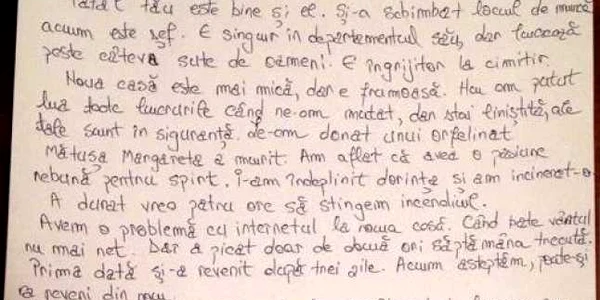 Tatăl tău este bine și el. Și-a schimbat locul de muncă
acum este șef. E singur în departamentul său, dar lucrează
peste câteva sute de oameni. E îngrijitor la cimitir.
Noua casă este mai mică, dar e frumoasă. Nu am putut
lua toate lucrurile când ne-am mutat, dar stai liniștită, ale
tale sunt în siguranță. Le-am donat unui orfelinat
Mătușa Margareta a murit. Am aflat că avea o pasiune
nebună pentru spirt. I-am îndeplinit dorința si am incinerat-o
A durat vreo patru ore să stingem incendiile.
Avem o problemă cu internetul la noua casă. Când bate vântul
nu mai net. Dar a picat doar de două ori săptămâna trecută.
Prima dată și-a revenit după trei zile. Acum așteptăm, poate-și
va reveni din nou